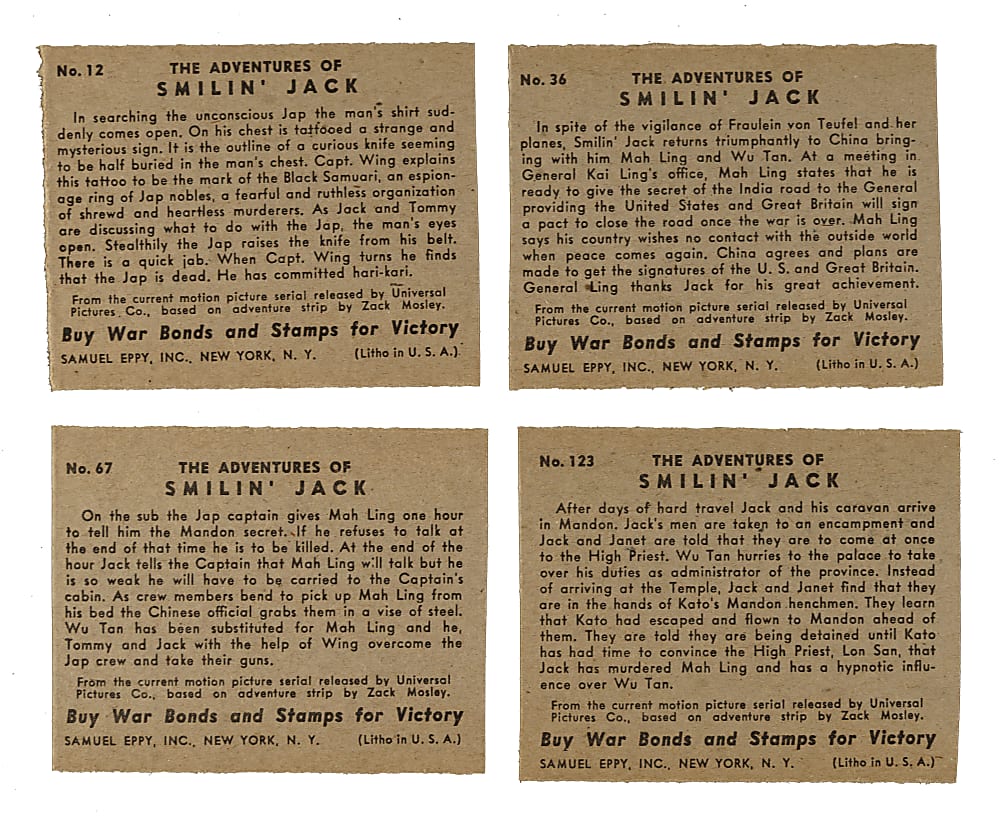 No. 12
THE ADVENTURES OF
SMILIN' JACK
In searching the unconscious Jap the man's shirt sud-
denly comes open. On his chest is tattooed a strange and
mysterious sign. It is the outline of a curious knife seeming
to be half buried in the man's chest. Capt. Wing explains
this tattoo to be the mark of the Black Samuari, an espion-
age ring of Jap nobles, a fearful and ruthless organization
of shrewd and heartless murderers. As Jack and Tommy
are discussing what to do with the Jap, the man's eyes
open. Stealthily the Jap raises the knife from his belt.
There is a quick jab. When Capt. Wing turns he finds
that the Jap is dead. He has committed hari-kari.
From the current motion picture serial released by Universal
Pictures Co., based on adventure strip by Zack Mosley.
Buy War Bonds and Stamps for Victory
SAMUEL EPPY, INC., NEW YORK, N. Y. (Litho in U. S. A.)
No. 36
THE ADVENTURES OF
SMILIN' JACK
In spite of the vigilance of Fraulein von Teufel and her
planes, Smilin' Jack returns triumphantly to China bring-
ing with him Mah Ling and Wu Tan. At a meeting in
General Kai Ling's office, Mah Ling states that he is
ready to give the secret of the India road to the General
providing the United States and Great Britain will sign
a pact to close the road once the war is over. Mah Ling
says his country wishes no contact with the outside world
when peace comes again. China agrees and plans are
made to get the signatures of the U. S. and Great Britain.
General Ling thanks Jack for his great achievement.
From the current motion picture serial released by Universal
Pictures Co., based on adventure strip by Zack Mosley.
Buy War Bonds and Stamps for Victory
SAMUEL EPPY, INC., NEW YORK, N. Y. (Litho in U. S. A.)
No. 67
THE ADVENTURES OF
SMILIN' JACK
On the sub the Jap captain gives Mah Ling one hour
to tell him the Mandon secret. If he refuses to talk at
the end of that time he is to be killed. At the end of the
hour Jack tells the Captain that Mah Ling will talk but he
is so weak he will have to be carried to the Captain's
cabin. As crew members bend to pick up Mah Ling from
his bed the Chinese official grabs them in a vise of steel.
Wu Tan has been substituted for Mah Ling and he,
Tommy and Jack with the help of Wing overcome the
Jap crew and take their guns.
From the current motion picture serial released by Universal
Pictures Co., based on adventure strip by Zack Mosley.
Buy War Bonds and Stamps for Victory
SAMUEL EPPY, INC., NEW YORK, N. Y. (Litho in U. S. A.)
No. 123
THE ADVENTURES OF
SMILIN' JACK
After days of hard travel Jack and his caravan arrive
in Mandon. Jack's men are taken to an encampment and
Jack and Janet are told that they are to come at once
to the High Priest. Wu Tan hurries to the palace to take
over his duties as administrator of the province. Instead
of arriving at the Temple, Jack and Janet find that they
are in the hands of Kato's Mandon henchmen. They learn
that Kato had escaped and flown to Mandon ahead of
them. They are told they are being detained until Kato
has had time to convince the High Priest, Lon San, that
Jack has murdered Mah Ling and has a hypnotic influ-
ence over Wu Tan.
From the current motion picture serial released by Universal
Pictures Co., based on adventure strip by Zack Mosley.
Buy War Bonds and Stamps for Victory
SAMUEL EPPY, INC., NEW YORK, N. Y. (Litho in U. S. A.)